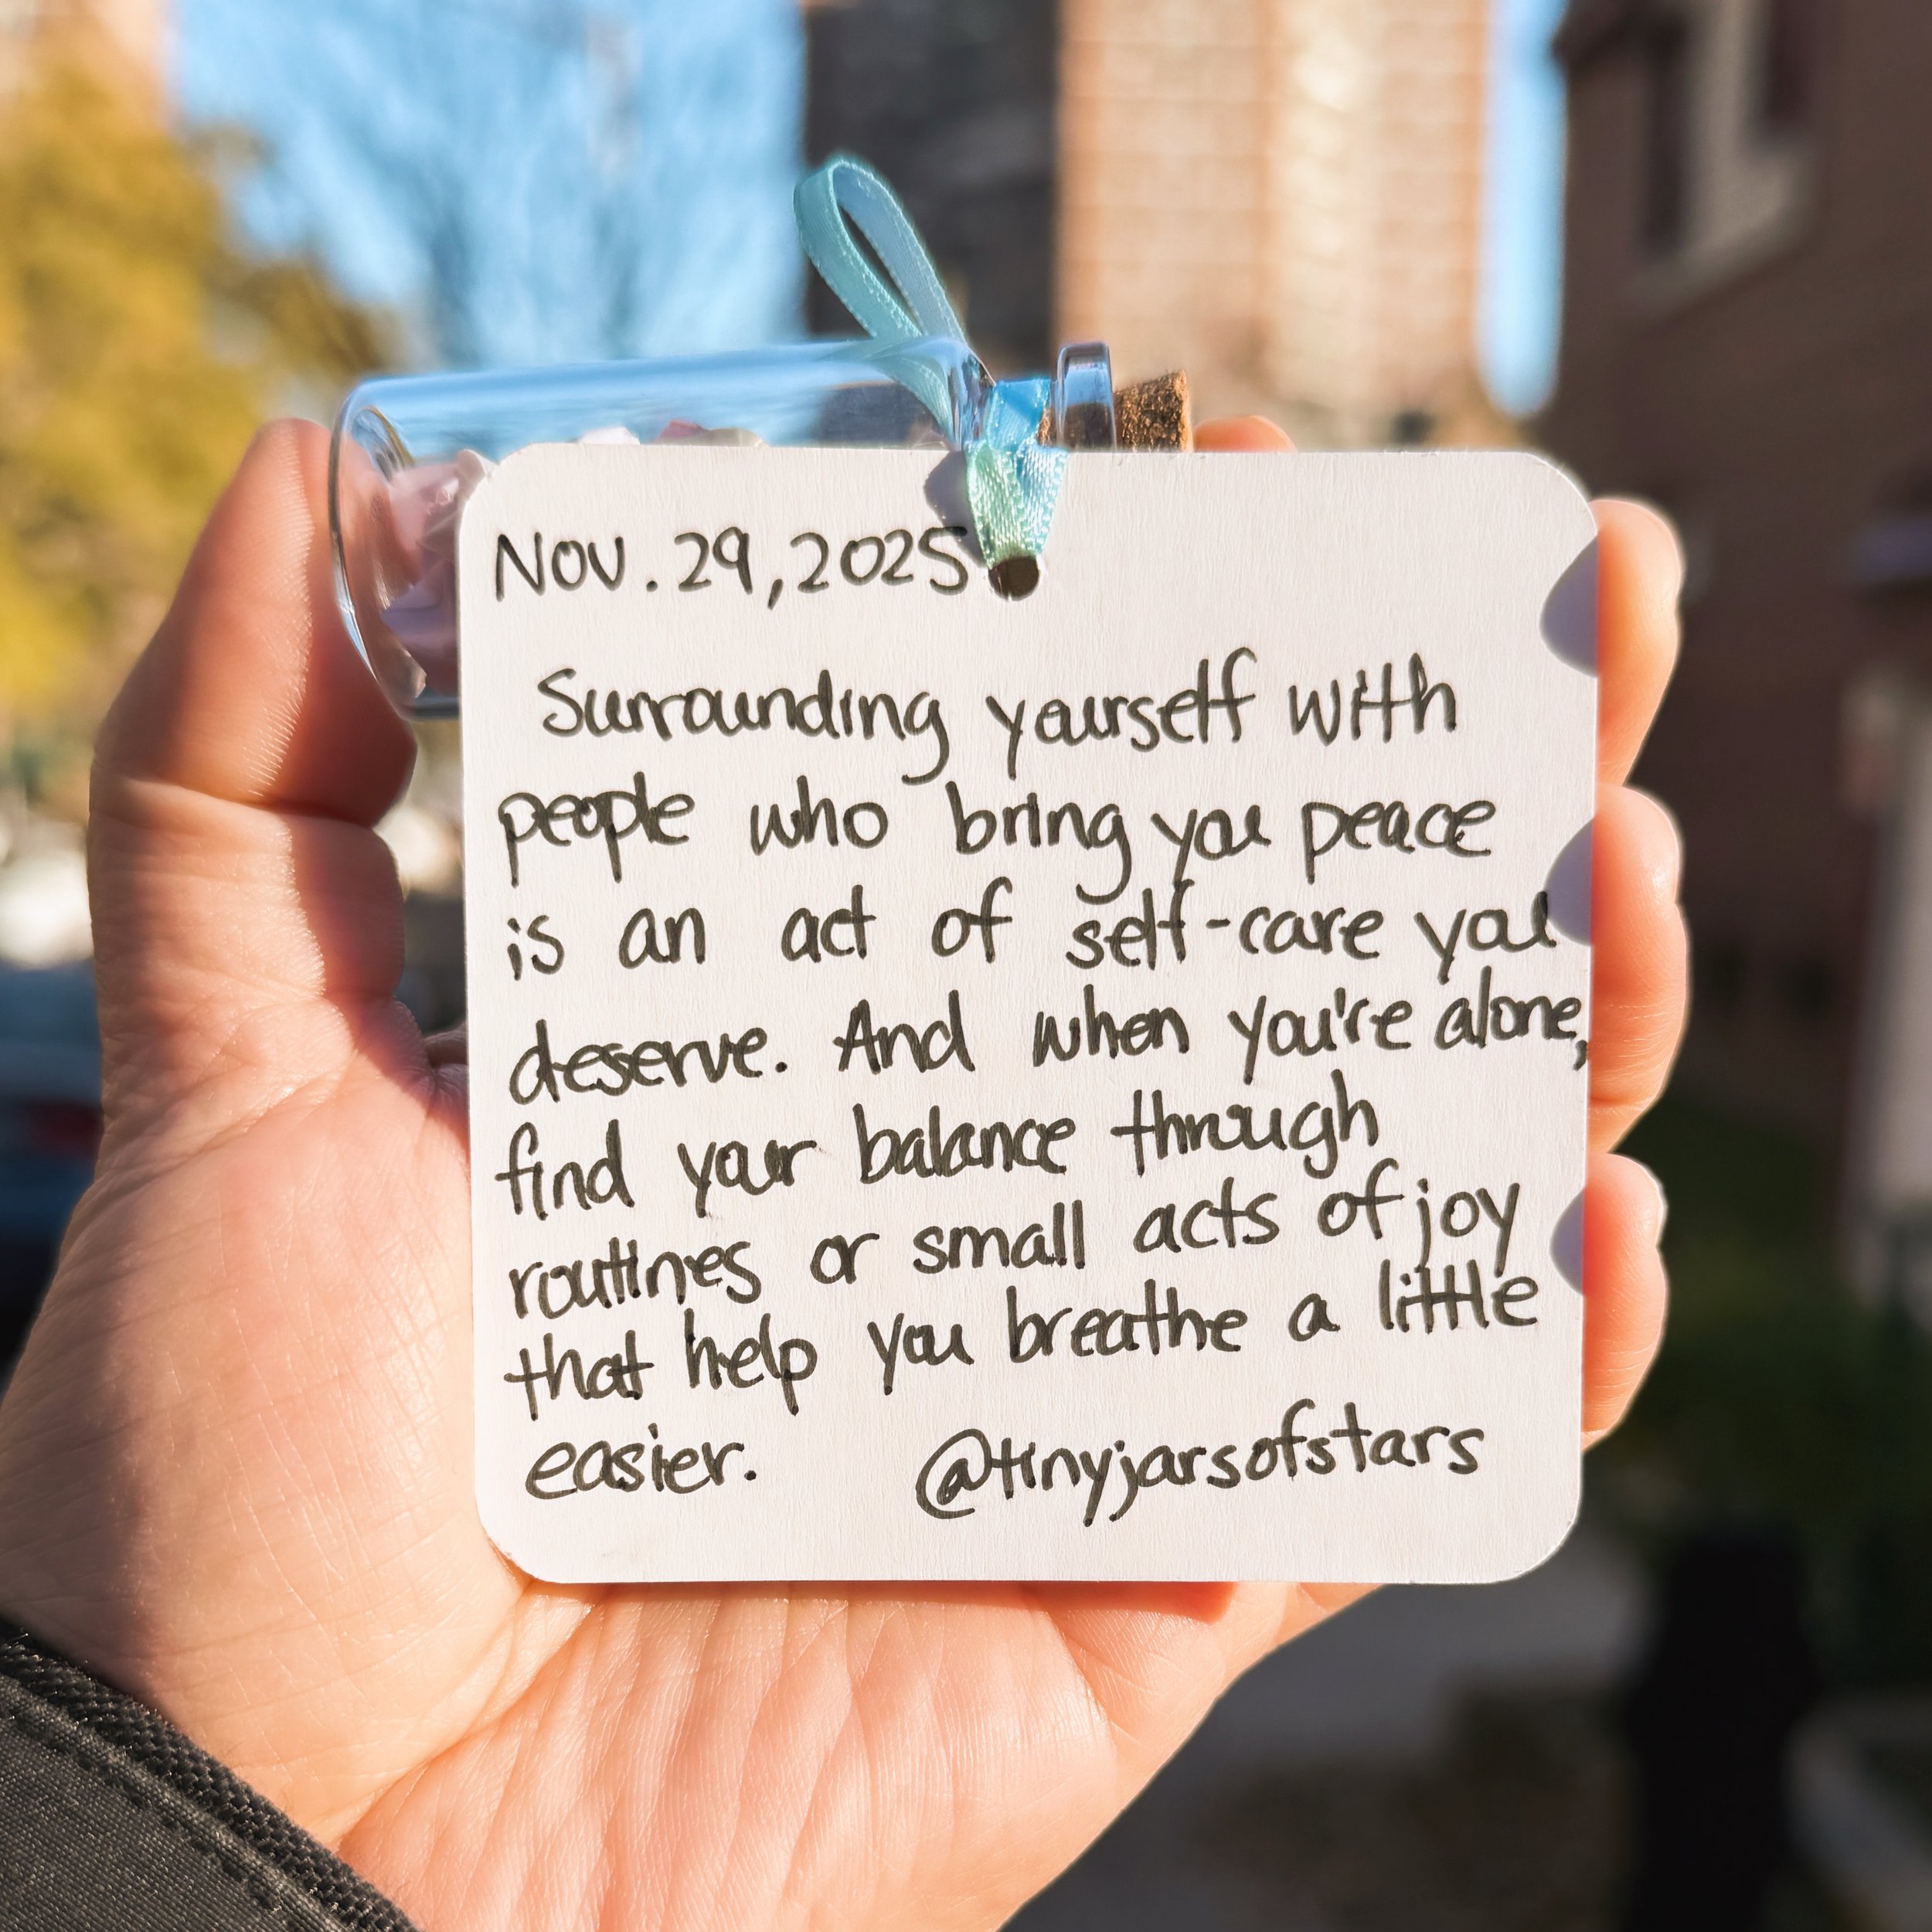 Nov. 29, 2025
Surrounding yourself with
people who bring you peace
is an act of self-care you
deserve. And when you're alone,
find your balance through
routines or small acts of joy
that help you breathe a little
easier. @tinyjarsofstars